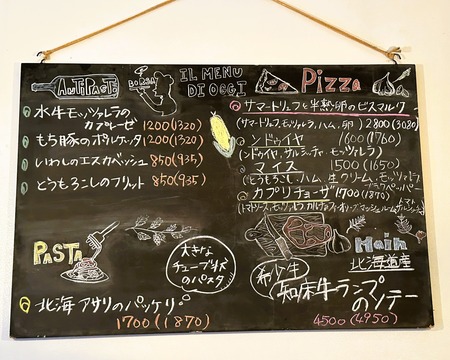 ANTIPASTI
BORSA
IL MENU
DI OGGI
Pizza
水牛モッツァレラの
カプレーゼ 1200(1320)
もち豚のポルケッタ 1200(1320)
いわしのエスカベッシュ 850(935)
とうもろこしのフリット 850(935)
サマートリュフと半熟卵のビスマルク
(サマートリュフ、モッツァレラ、ハム、卵) 2800(3080)
ンドゥイヤ 1600(1760)
(ンドゥイヤ、サルシッチャ、モッツァレラ)
マイス 1500(1650)
(とうもろこし、ハム、生クリーム、モッツァレラ
ブラックペッパー)
カプリチョーザ 1700(1870)
PASTA
大きな
チューブ状
のパスタ
北海アサリのパッケリ
1700(1870)
Main
北海道産
希少牛
知床牛ランプ
のソテー
4500(4950)